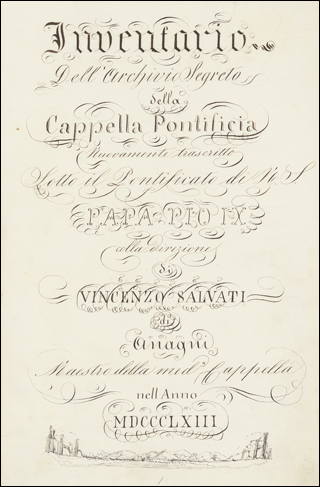 Inventario
Dell'Archivio Segreto
della
Cappella Pontificia
Nuovamente trascritto
Sotto il Pontificato di N. S.
PAPA PIO IX
colla Direzione
di
VINCENZO SALVATI
di
Anagni
Maestro della med.ª Cappella
nell'Anno
MDCCCLXIII